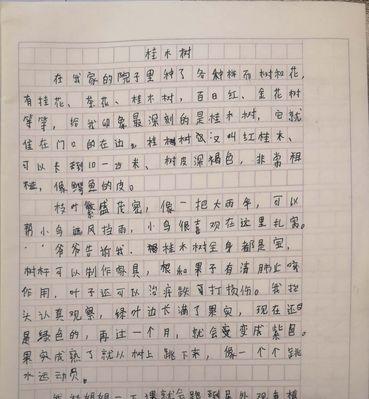 桂木树
在我家的院子里种了各种树和花,
有桂花、茶花、桂木树,百日红、金花树
等等,给我印象最深刻的是桂木树,它就
住在门口的在边。桂树又叫红桂木、
可以长到10一15米、树皮深褐色,非常粗
糙,像鳄鱼的皮。
枝叶繁盛茂密,像一把大雨伞,可以
帮小鸟遮风挡雨,小鸟很喜欢在这里扎窝。
爷爷告诉我,桂木树全身都是宝,
树杆可以制作家具,根和果子有清肺止咳
作用,叶子还可以治疗跌打损伤。我抬
头认真观察,绿叶边长满了果实,现在还
是绿色的,再过一个月,就会变成紫色。
果实成熟了就从树上跳下来,像一个个跳
水运动员。